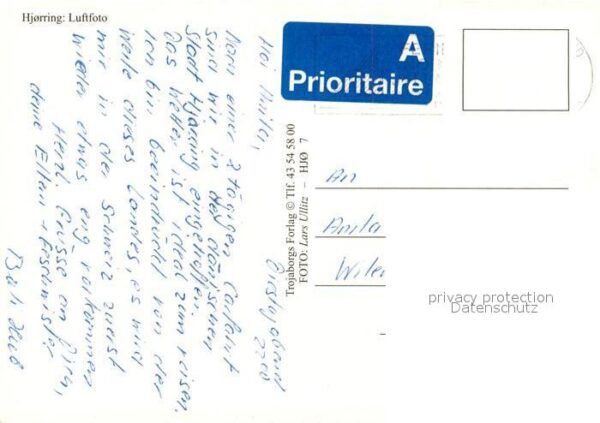 Hjørring: Luftfoto
A
Prioritaire
Dienstagabend
2200
Hoi Anita,
Nach einer 2 tägigen Carfahrt
sind wir in der dänischen
Stadt Hjøring eingetroffen.
Das Wetter ist ideal zum reisen.
Ich bin beeindruckt von der
weite dieses Landes, es wird
mir in der Schweiz zuerst
wieder etwas eng vorkommen
Herzl. Grüsse an Dich,
deine Eltern + Geschwister
Trojaborgs Forlag © Tlf. 43 54 58 00
FOTO: Lars Ullitz – HJØ 7
An
Anita
privacy protection
Datenschutz